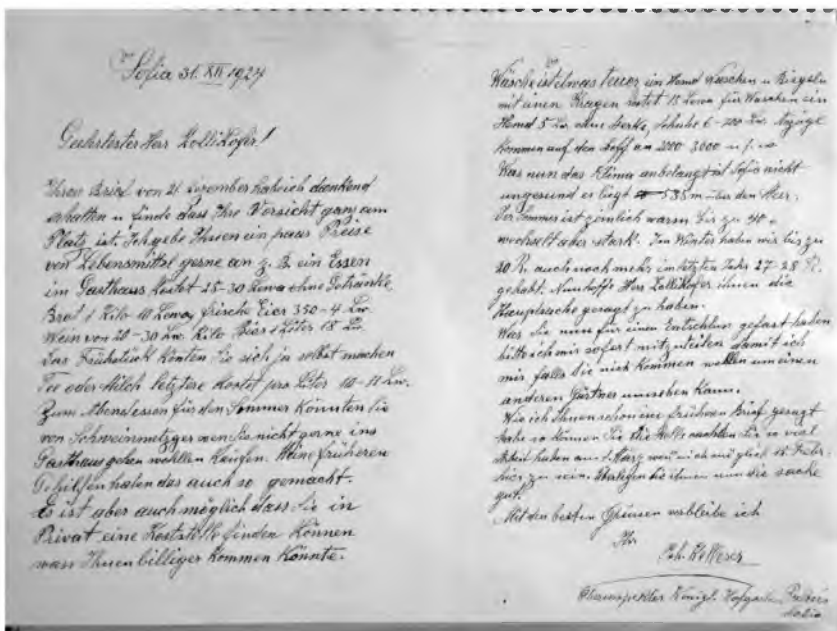 Sofia 31. XII 1924
Geehrtester Herr Zollikofer!
Ihren Brief von 21 Dezember habe ich dankend
erhalten u finde dass Ihre Vorsicht ganz am
Platz ist. Ich gebe Ihnen ein paar Preise
von Lebensmittel gerne an z. B. ein Essen
im Gasthaus kostet 25-30 Lewa ohne Getränke,
Brot 1 Kilo 10 Lewa, frische Eier 350-4 Lw.
Wein von 20-30 Lw. Kilo Bier 1 Liter 18 Lw.
Das Frühstück könten Sie sich ja selbst machen
Tee oder Milch letztere kostet pro Liter 10-11 Lw.
Zum Abendessen für den Sommer könnten Sie
von Schweinmetzger wen Sie nicht gerne ins
Gasthaus gehen wohllen kaufen. Meine früheren
Gehilfen haben das auch so gemacht.
Es ist aber auch möglich dass Sie in
Privat eine Kostelle finden können
was Ihnen billiger kommen könnte.
Wäsche ist etwas teuer ein Hemd Waschen u Biegeln
mit einen Kragen kostet 18 Lewa für Waschen ein
Hemd 5 Lw. Schuhe 6-700 Lw. Anzüge
kommen auf den Stoff an 2000 3000 u. s. w
Was nun das Klima anbelangt ist Sofia nicht
ungesund es liegt 535 m über den Meer.
Der Sommer ist zemlich warm bis zu
wechselt aber stark. Im Winter haben wir bis zu
20 R. auch noch mehr im letzten Jahr 27-28 R.
gehabt. Nun hoffe Herr Zollikofer ihnen die
Hauptsache gesagt zu haben.
Was Sie nun für einen Entschluss gefast haben
bitte ich mir sofort mitzuteilen damit ich
mir falls Sie nicht kommen wollen um einen
anderen Gärtner umsehen kann.
Wie ich Ihnen schon im früheren Brief gesagt
habe so können Sie die Stelle da Sie so viel
Arbeit haben am 1 März wen nich möglich 15 Febr.
hier zu sein. Überlegen Sie ihnen nun die sache
gut!
Mit den besten Grüssen verbleibe ich
Ihr
Joh. Kellerer
Oberinspektor Königl. Hofgarten
Sofia